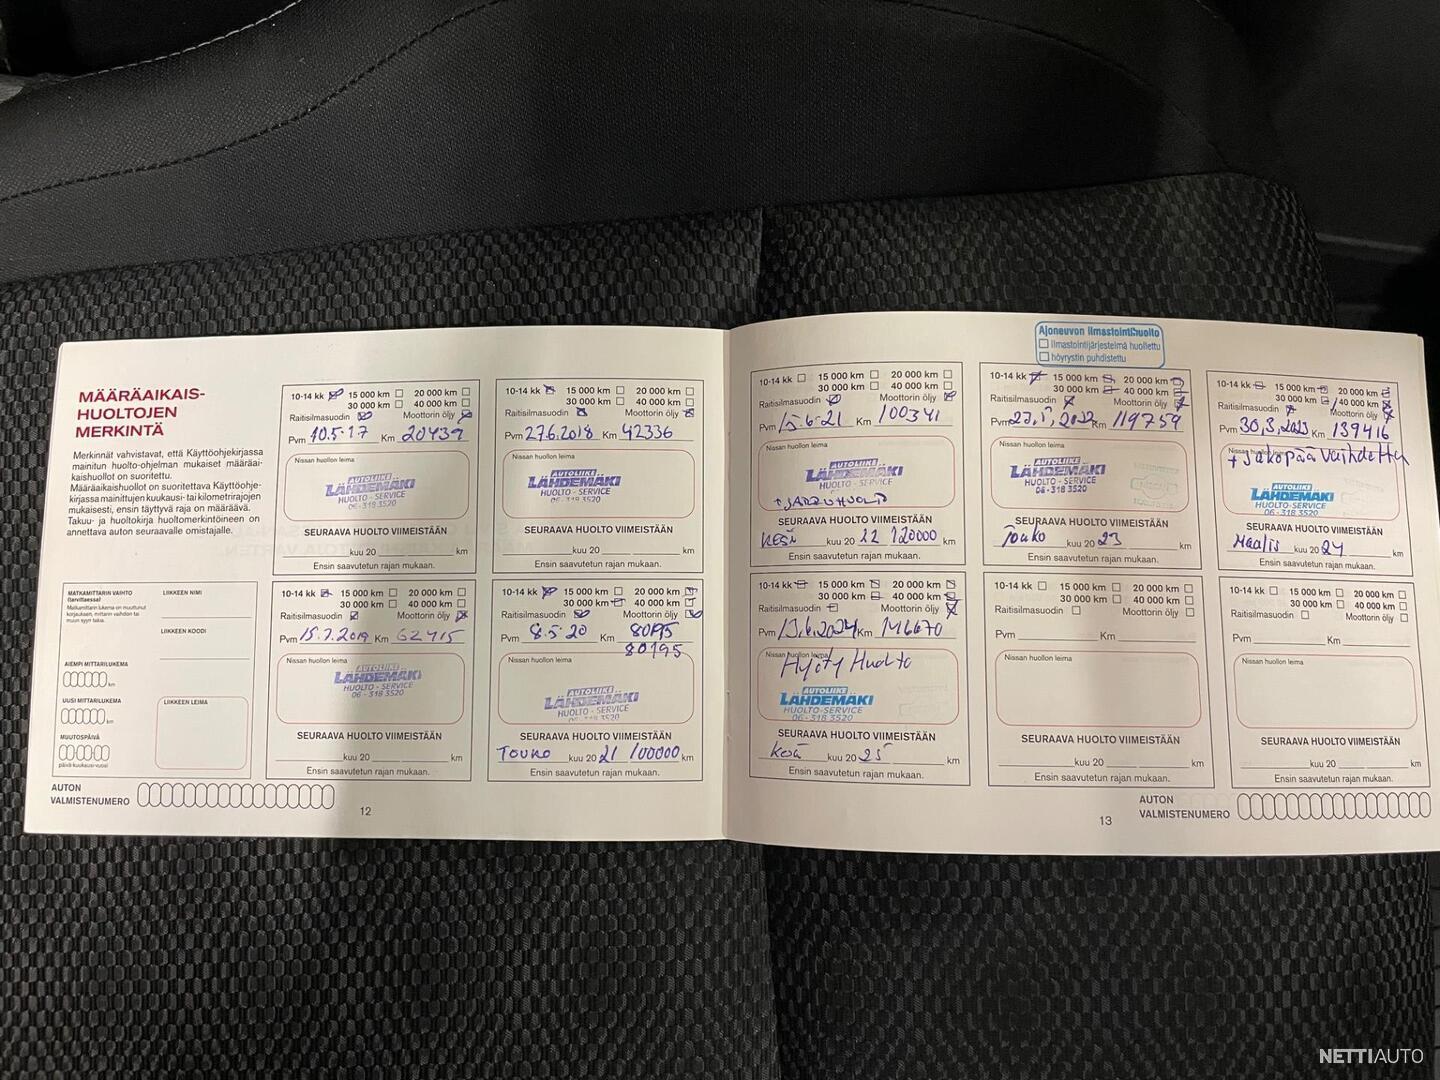 MÄÄRÄAIKAIS-
HUOLTOJEN
MERKINTÄ
Merkinnät vahvistavat, että Käyttöohjekirjassa
mainitun huolto-ohjelman mukaiset määräai-
kaishuollot on suoritettu.
Määräaikaishuollot on suoritettava Käyttöohje-
kirjassa mainittujen kuukausi- tai kilometrirajojen
mukaisesti, ensin täyttyvä raja on määräävä.
Takuu- ja huoltokirja huoltomerkintöineen on
annettava auton seuraavalle omistajalle.
MATKAMITTARIN VAIHTO
(tarvittaessa)
Matkamittarin lukema on muuttunut
korjauksen, mittarin vaihdon tai
muun syyn takia.
LIIKKEEN NIMI
LIIKKEEN KOODI
AIEMPI MITTARILUKEMA
km
UUSI MITTARILUKEMA
km
LIIKKEEN LEIMA
MUUTOSPÄIVÄ
päivä-kuukausi-vuosi
AUTON
VALMISTENUMERO
10-14 kk 15 000 km 20 000 km
30 000 km 40 000 km
Raitisilmasuodin Moottorin öljy
Pvm 10.5.17 Km 20439
Nissan huollon leima
AUTOLIIKE
LÄHDEMÄKI
HUOLTO - SERVICE
06 - 318 3520
SEURAAVA HUOLTO VIIMEISTÄÄN
kuu 20 km
Ensin saavutetun rajan mukaan.
10-14 kk 15 000 km 20 000 km
30 000 km 40 000 km
Raitisilmasuodin Moottorin öljy
Pvm 27.6.2018 Km 42336
Nissan huollon leima
AUTOLIIKE
LÄHDEMÄKI
HUOLTO - SERVICE
06 - 318 3520
SEURAAVA HUOLTO VIIMEISTÄÄN
kuu 20 km
Ensin saavutetun rajan mukaan.
10-14 kk 15 000 km 20 000 km
30 000 km 40 000 km
Raitisilmasuodin Moottorin öljy
Pvm 15.7.2019 Km 62415
Nissan huollon leima
AUTOLIIKE
LÄHDEMÄKI
HUOLTO - SERVICE
06 - 318 3520
SEURAAVA HUOLTO VIIMEISTÄÄN
kuu 20 km
Ensin saavutetun rajan mukaan.
10-14 kk 15 000 km 20 000 km
30 000 km 40 000 km
Raitisilmasuodin Moottorin öljy
Pvm 8.5.20 Km
80195
Nissan huollon leima
AUTOLIIKE
LÄHDEMÄKI
HUOLTO - SERVICE
06 - 318 3520
SEURAAVA HUOLTO VIIMEISTÄÄN
Touko kuu 20 21 / 100000 km
Ensin saavutetun rajan mukaan.
12
Ajoneuvon ilmastointihuolto
ilmastointijärjestelmä huollettu
höyrystin puhdistettu
10-14 kk 15 000 km 20 000 km
30 000 km 40 000 km
Raitisilmasuodin Moottorin öljy
Pvm 15.6.21 Km 100341
Nissan huollon leima
AUTOLIIKE
LÄHDEMÄKI
HUOLTO - SERVICE
+ JARRUHUOLTO
SEURAAVA HUOLTO VIIMEISTÄÄN
KESÄ kuu 20 22 120000 km
Ensin saavutetun rajan mukaan.
10-14 kk 15 000 km 20 000 km
30 000 km 40 000 km
Raitisilmasuodin Moottorin öljy
Pvm 23.5.2022 Km 119759
Nissan huollon leima
AUTOLIIKE
LÄHDEMÄKI
HUOLTO - SERVICE
06 - 318 3520
SEURAAVA HUOLTO VIIMEISTÄÄN
Touko kuu 20 23 km
Ensin saavutetun rajan mukaan.
10-14 kk 15 000 km 20 000 km
30 000 km 40 000 km
Raitisilmasuodin Moottorin öljy
Pvm 30.3.2023 Km 139416
Nissan huollon leima
+ Jakopää vaihdettu
AUTOLIIKE
LÄHDEMÄKI
HUOLTO-SERVICE
06 - 318 3520
SEURAAVA HUOLTO VIIMEISTÄÄN
Maalis kuu 20 24 km
Ensin saavutetun rajan mukaan.
10-14 kk 15 000 km 20 000 km
30 000 km 40 000 km
Raitisilmasuodin Moottorin öljy
Pvm 13.6.2024 Km 146670
Nissan huollon leima
Hyöty Huolto
AUTOLIIKE
LÄHDEMÄKI
HUOLTO-SERVICE
06 - 318 3520
SEURAAVA HUOLTO VIIMEISTÄÄN
Kesä kuu 20 25 km
Ensin saavutetun rajan mukaan.
10-14 kk 15 000 km 20 000 km
30 000 km 40 000 km
Raitisilmasuodin Moottorin öljy
Pvm Km
Nissan huollon leima
SEURAAVA HUOLTO VIIMEISTÄÄN
kuu 20 km
Ensin saavutetun rajan mukaan.
10-14 kk 15 000 km 20 000 km
30 000 km 40 000 km
Raitisilmasuodin Moottorin öljy
Pvm Km
Nissan huollon leima
SEURAAVA HUOLTO VIIMEISTÄÄN
kuu 20 km
Ensin saavutetun rajan mukaan.
13
AUTON
VALMISTENUMERO
NETTIAUTO